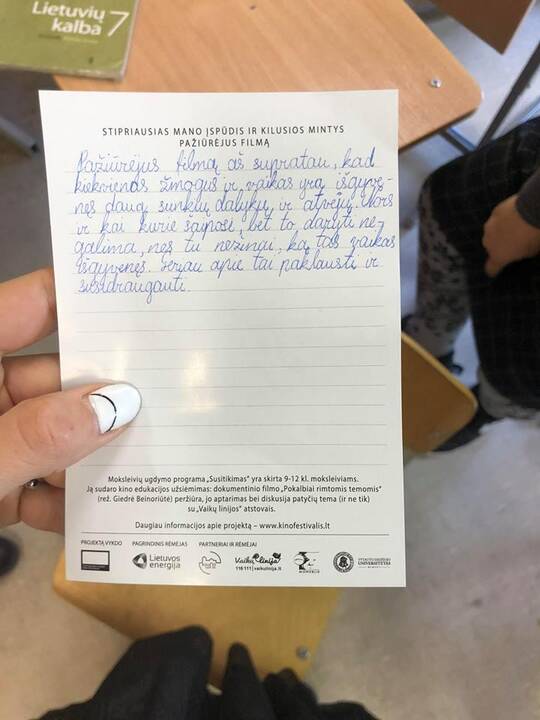 Lietuvių
kalba 7
STIPRIAUSIAS MANO ĮSPŪDIS IR KILUSIOS MINTYS
PAŽIŪRĖJUS FILMĄ
Pažiūrėjus filmą aš supratau, kad
kiekvienas žmogus ir vaikas yra išgyve-
nęs daug sunkių dalykų ir atvejų. Nors
ir kai kurie šaiposi, bet to daryti ne-
galima, nes tu nežinai, ką tas vaikas
išgyvenęs. Geriau apie tai paklausti ir
susidraugauti.
Moksleivių ugdymo programa „Susitikimas“ yra skirta 9-12 kl. moksleiviams.
Ją sudaro kino edukacijos užsiėmimas: dokumentinio filmo „Pokalbiai rimtomis temomis“
(rež. Giedrė Beinoriūtė) peržiūra, jo aptarimas bei diskusija patyčių tema (ir ne tik)
su „Vaikų linijos“ atstovais.
Daugiau informacijos apie projektą – www.kinofestivalis.lt
PROJEKTĄ VYKDO PAGRINDINIS RĖMĖJAS PARTNERIAI IR RĖMĖJAI
Lietuvos
energija
Vaikų linija
116 111 | vaikulinija.lt
UNIVERSITETAS